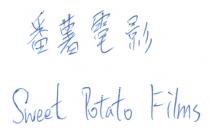 番薯電影
Sweet Potato Films